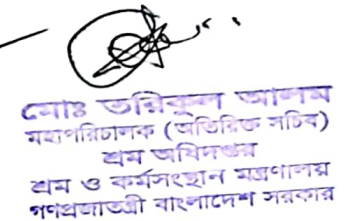 মোঃ তরিকুল আলম
মহাপরিচালক (অতিরিক্ত সচিব)
শ্রম অধিদপ্তর
শ্রম ও কর্মসংস্থান মন্ত্রণালয়
গণপ্রজাতন্ত্রী বাংলাদেশ সরকার